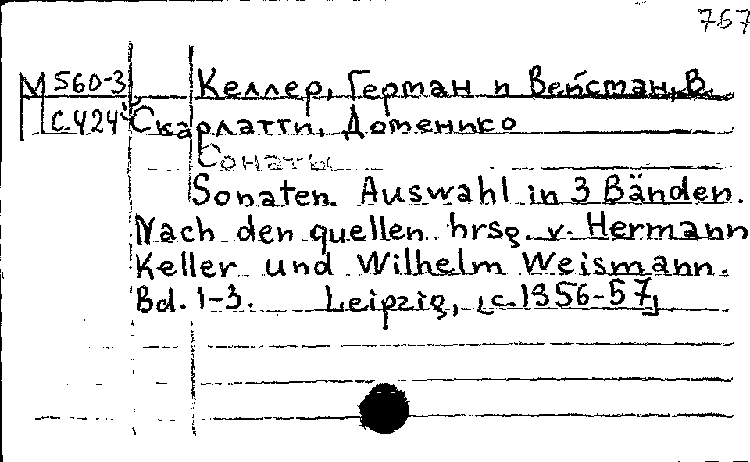 767
М 560-3 Келлер, Герман и Вейсман, В.
С.424 Скарлатти, Доменико
Сонаты
Sonaten. Auswahl in 3 Bänden.
Nach den quellen hrsg. v. Hermann
Keller und Wilhelm Weismann.
Bd. 1-3. Leipzig, [c.1956-57]